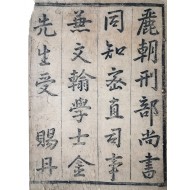 麗朝刑部尚書
同知密直司事
兼文翰學士金
先生受 賜丹